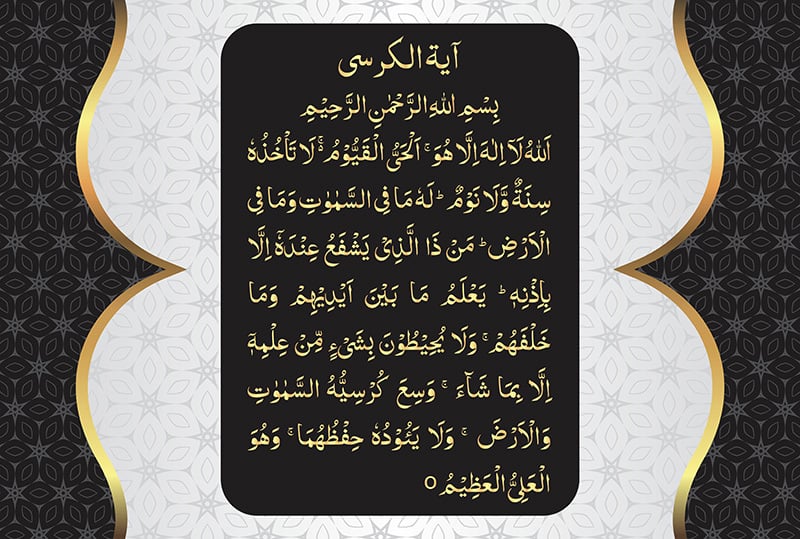 آية الكرسى
بِسْمِ اللهِ الرَّحْمٰنِ الرَّحِيْمِ
اَللهُ لَآ اِلٰهَ اِلَّا هُوَ ۚ اَلْحَيُّ الْقَيُّوْمُ ۬ۚ لَا تَاْخُذُهٗ
سِنَةٌ وَّلَا نَوْمٌ ؕ لَهٗ مَا فِى السَّمٰوٰتِ وَمَا فِى
الْاَرْضِ ؕ مَنْ ذَا الَّذِىْ يَشْفَعُ عِنْدَهٗٓ اِلَّا
بِاِذْنِهٖ ؕ يَعْلَمُ مَا بَيْنَ اَيْدِيْهِمْ وَمَا
خَلْفَهُمْ ۚ وَلَا يُحِيْطُوْنَ بِشَىْءٍ مِّنْ عِلْمِهٖٓ
اِلَّا بِمَا شَآءَ ۚ وَسِعَ كُرْسِيُّهُ السَّمٰوٰتِ
وَالْاَرْضَ ۚ وَلَا يَئُوْدُهٗ حِفْظُهُمَا ۚ وَهُوَ
الْعَلِىُّ الْعَظِيْمُ ○